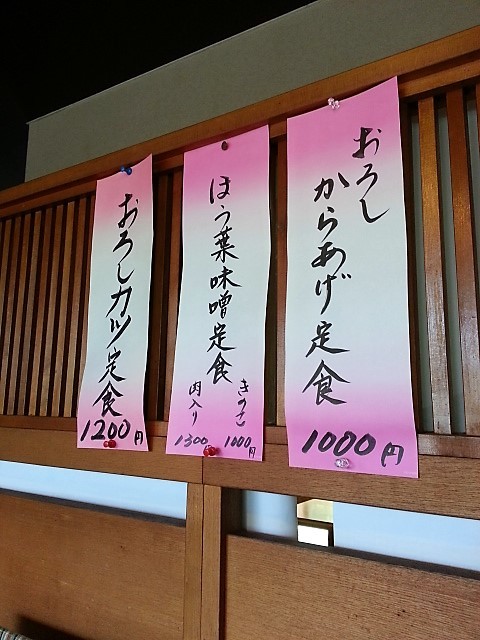 おろし
からあげ定食
1000円
ほう葉味噌定食
きのこ
1000円
肉入り
1300
おろしカツ定食
1200円